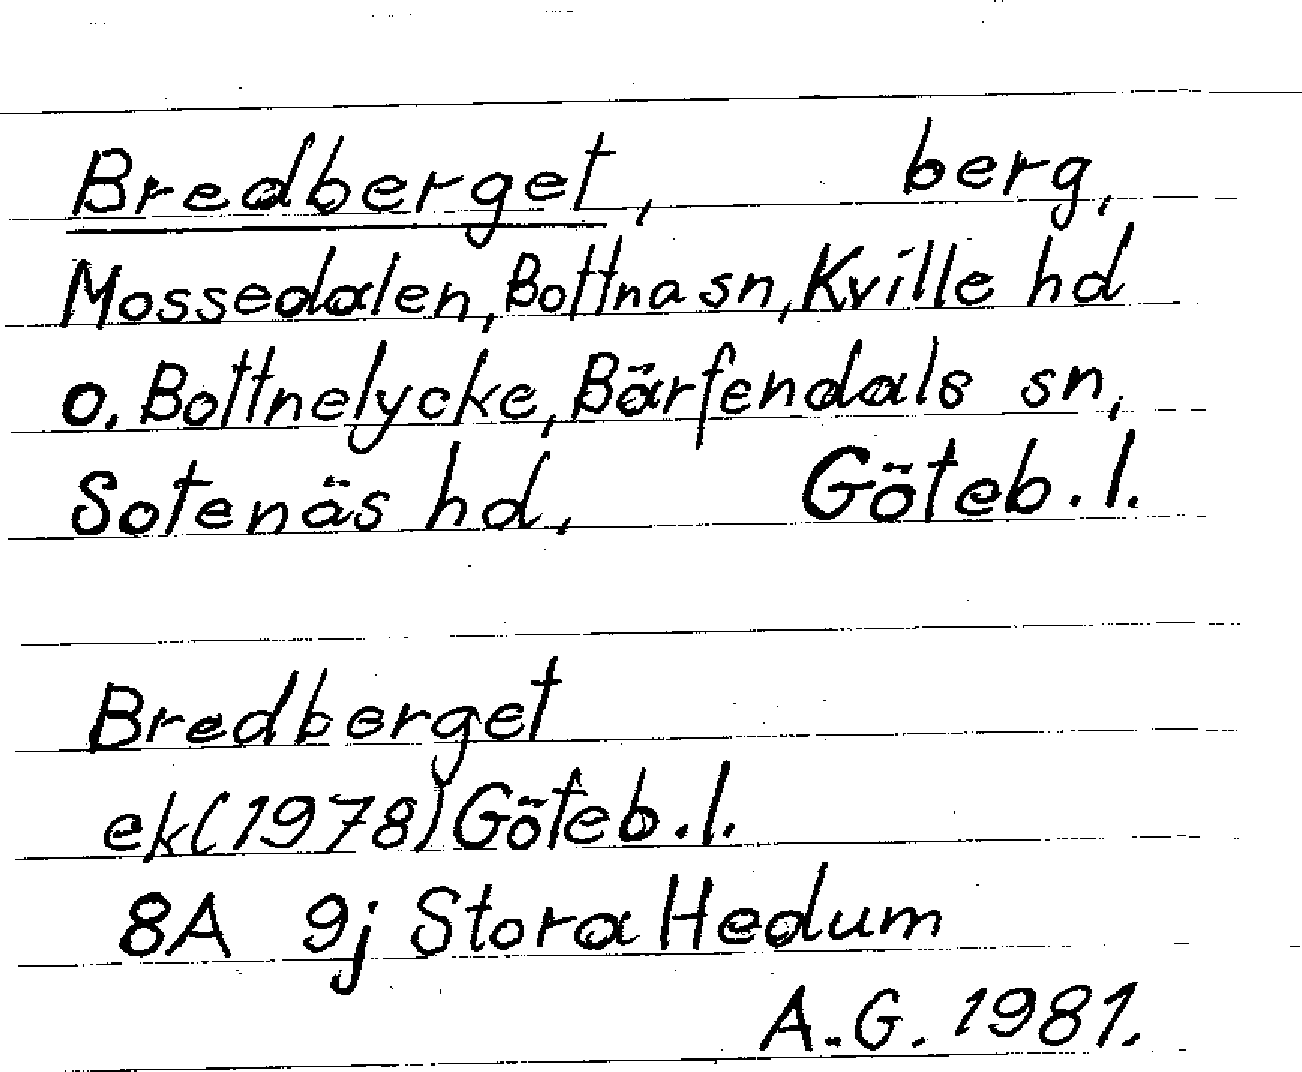 Bredberget, berg,
Mossedalen, Bottna sn, Kville hd
o. Bottnelycke, Bärfendals sn,
Sotenäs hd, Göteb. l.
Bredberget
ek (1978) Göteb. l.
8A 9j Stora Hedum
A.G. 1981.